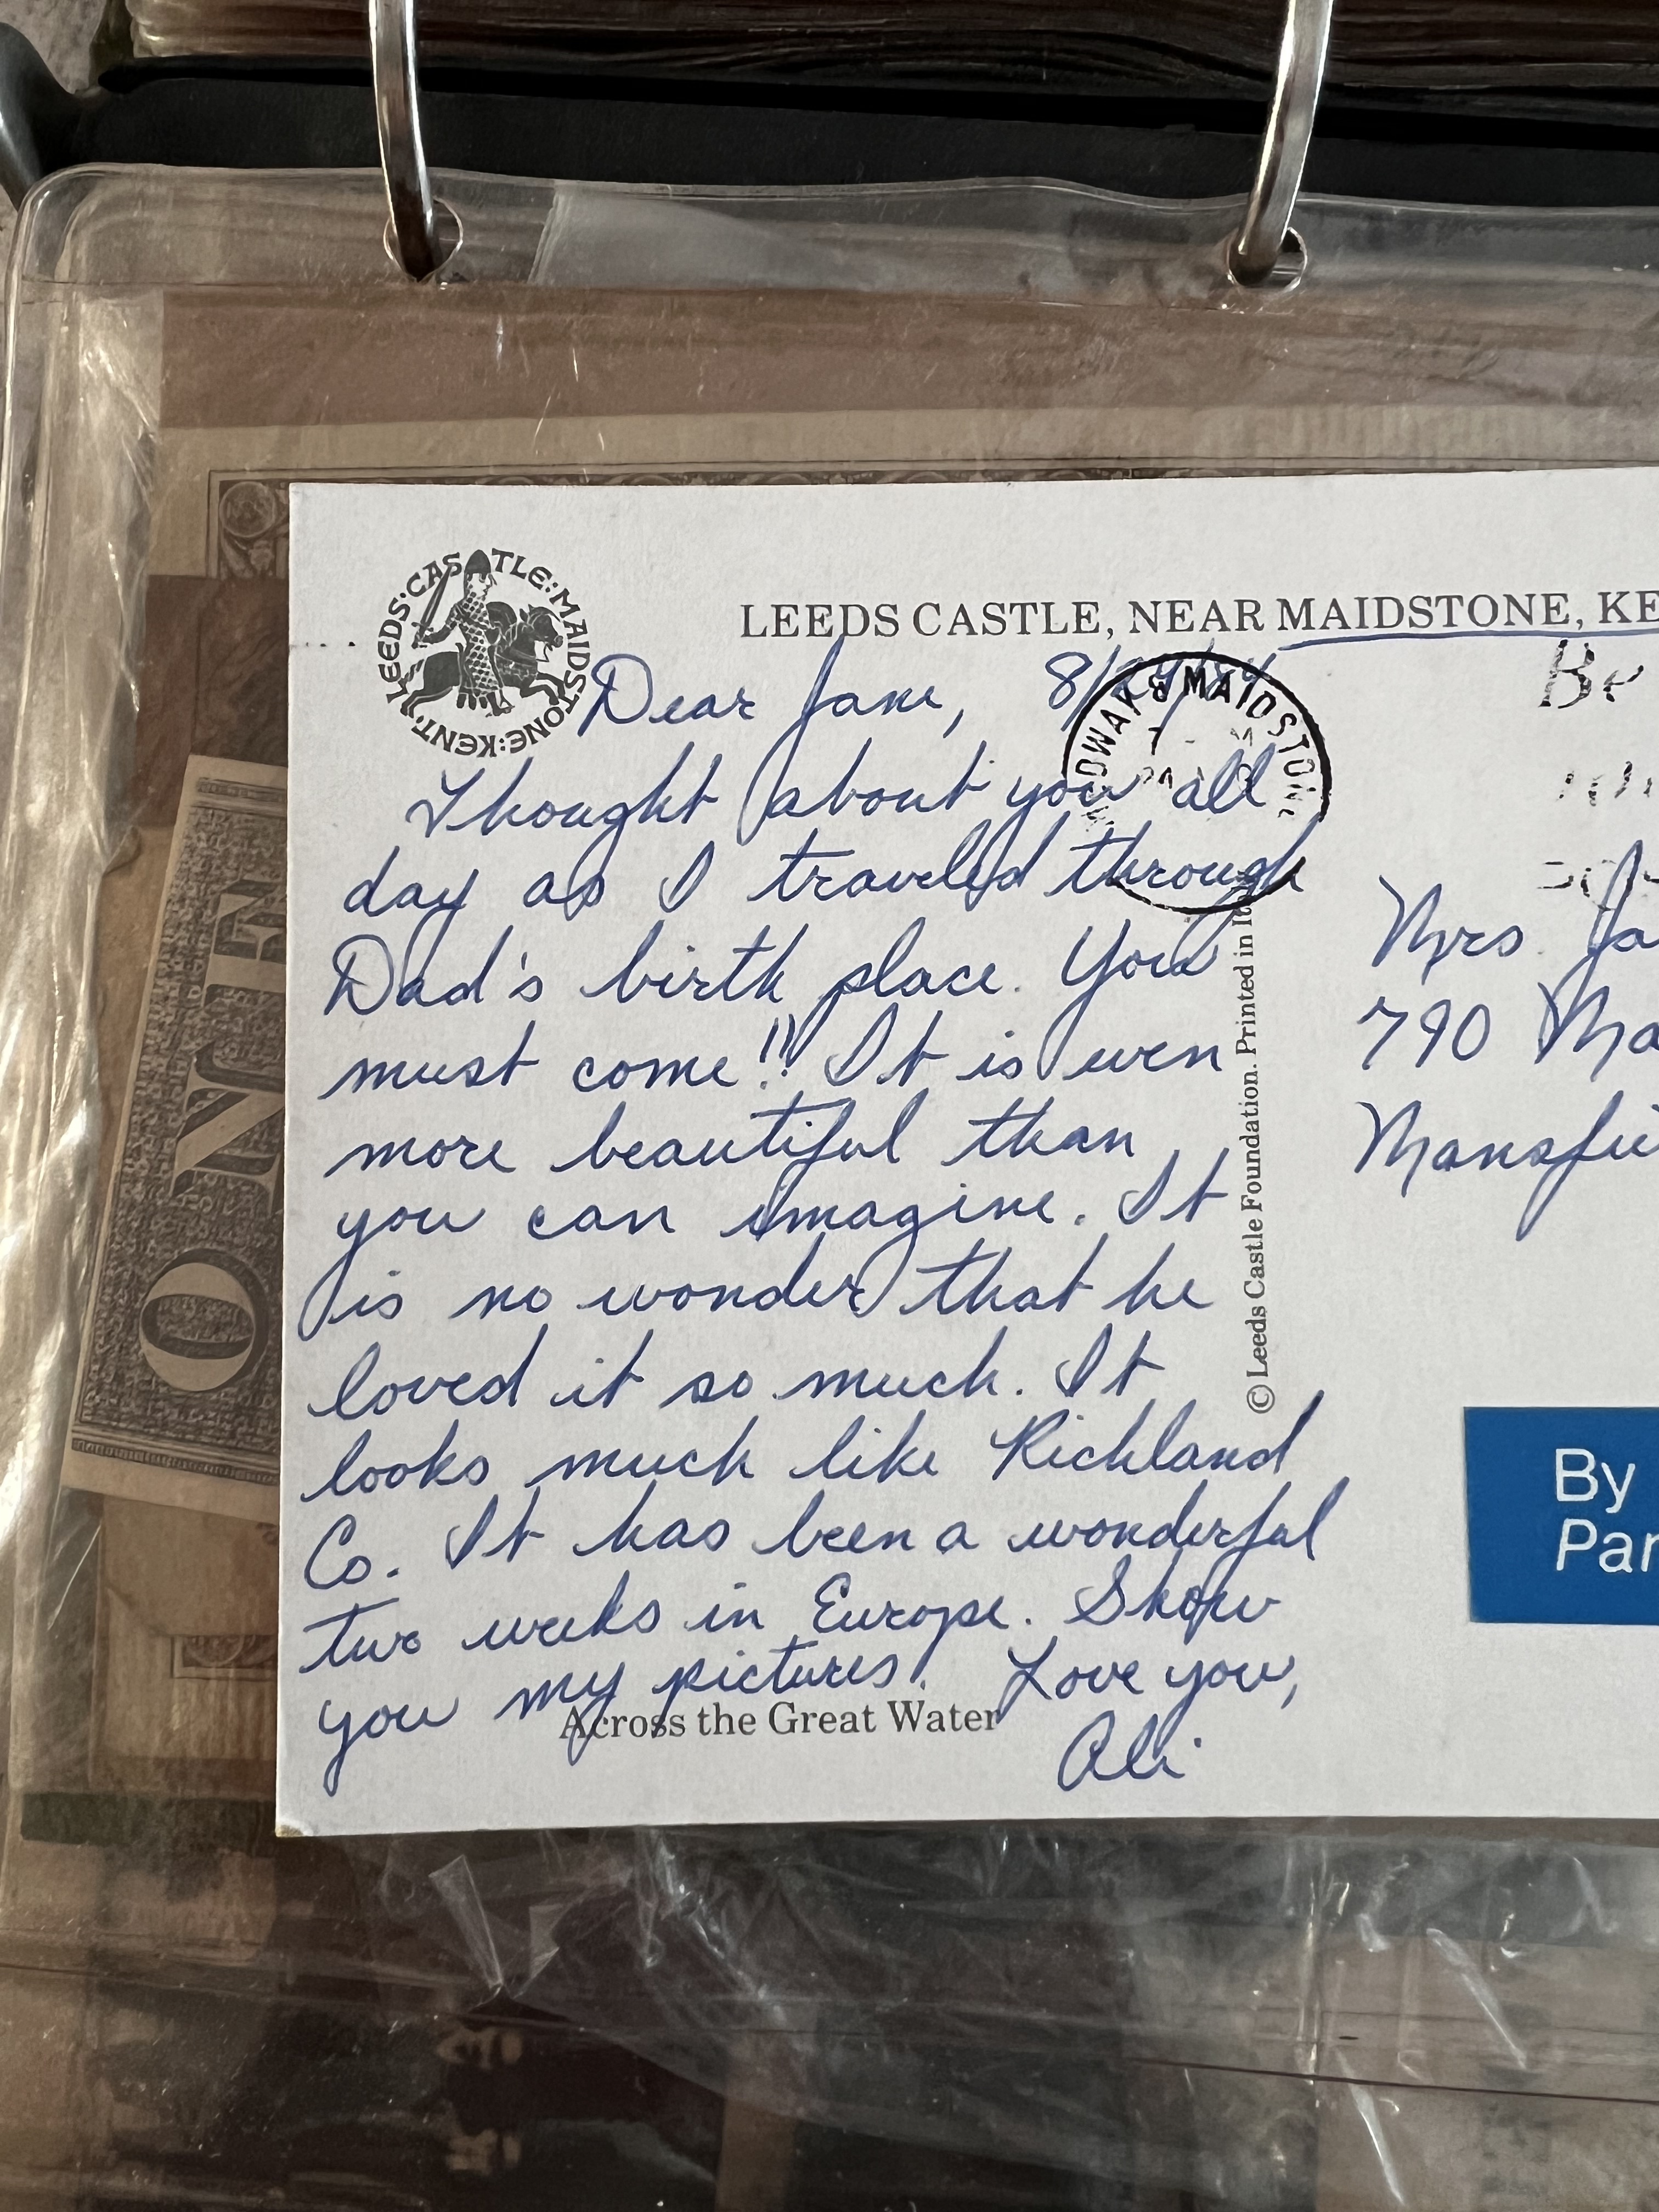 LEEDS·CASTLE:MAIDSTONE:KENT·
LEEDS CASTLE, NEAR MAIDSTONE, KE
Dear Jane,
MAIDSTONE
Thought about you all
day as I traveled through
Dad's birth place. You
must come!! It is even
more beautiful than
you can imagine. It
is no wonder that he
loved it so much. It
looks much like Richland
Co. It has been a wonderful
two weeks in Europe. Show
you my pictures. Love you,
Ali
Across the Great Water
© Leeds Castle Foundation. Printed in It
Mrs. Ja
790 Ma
Mansfie
By
Par
ONE